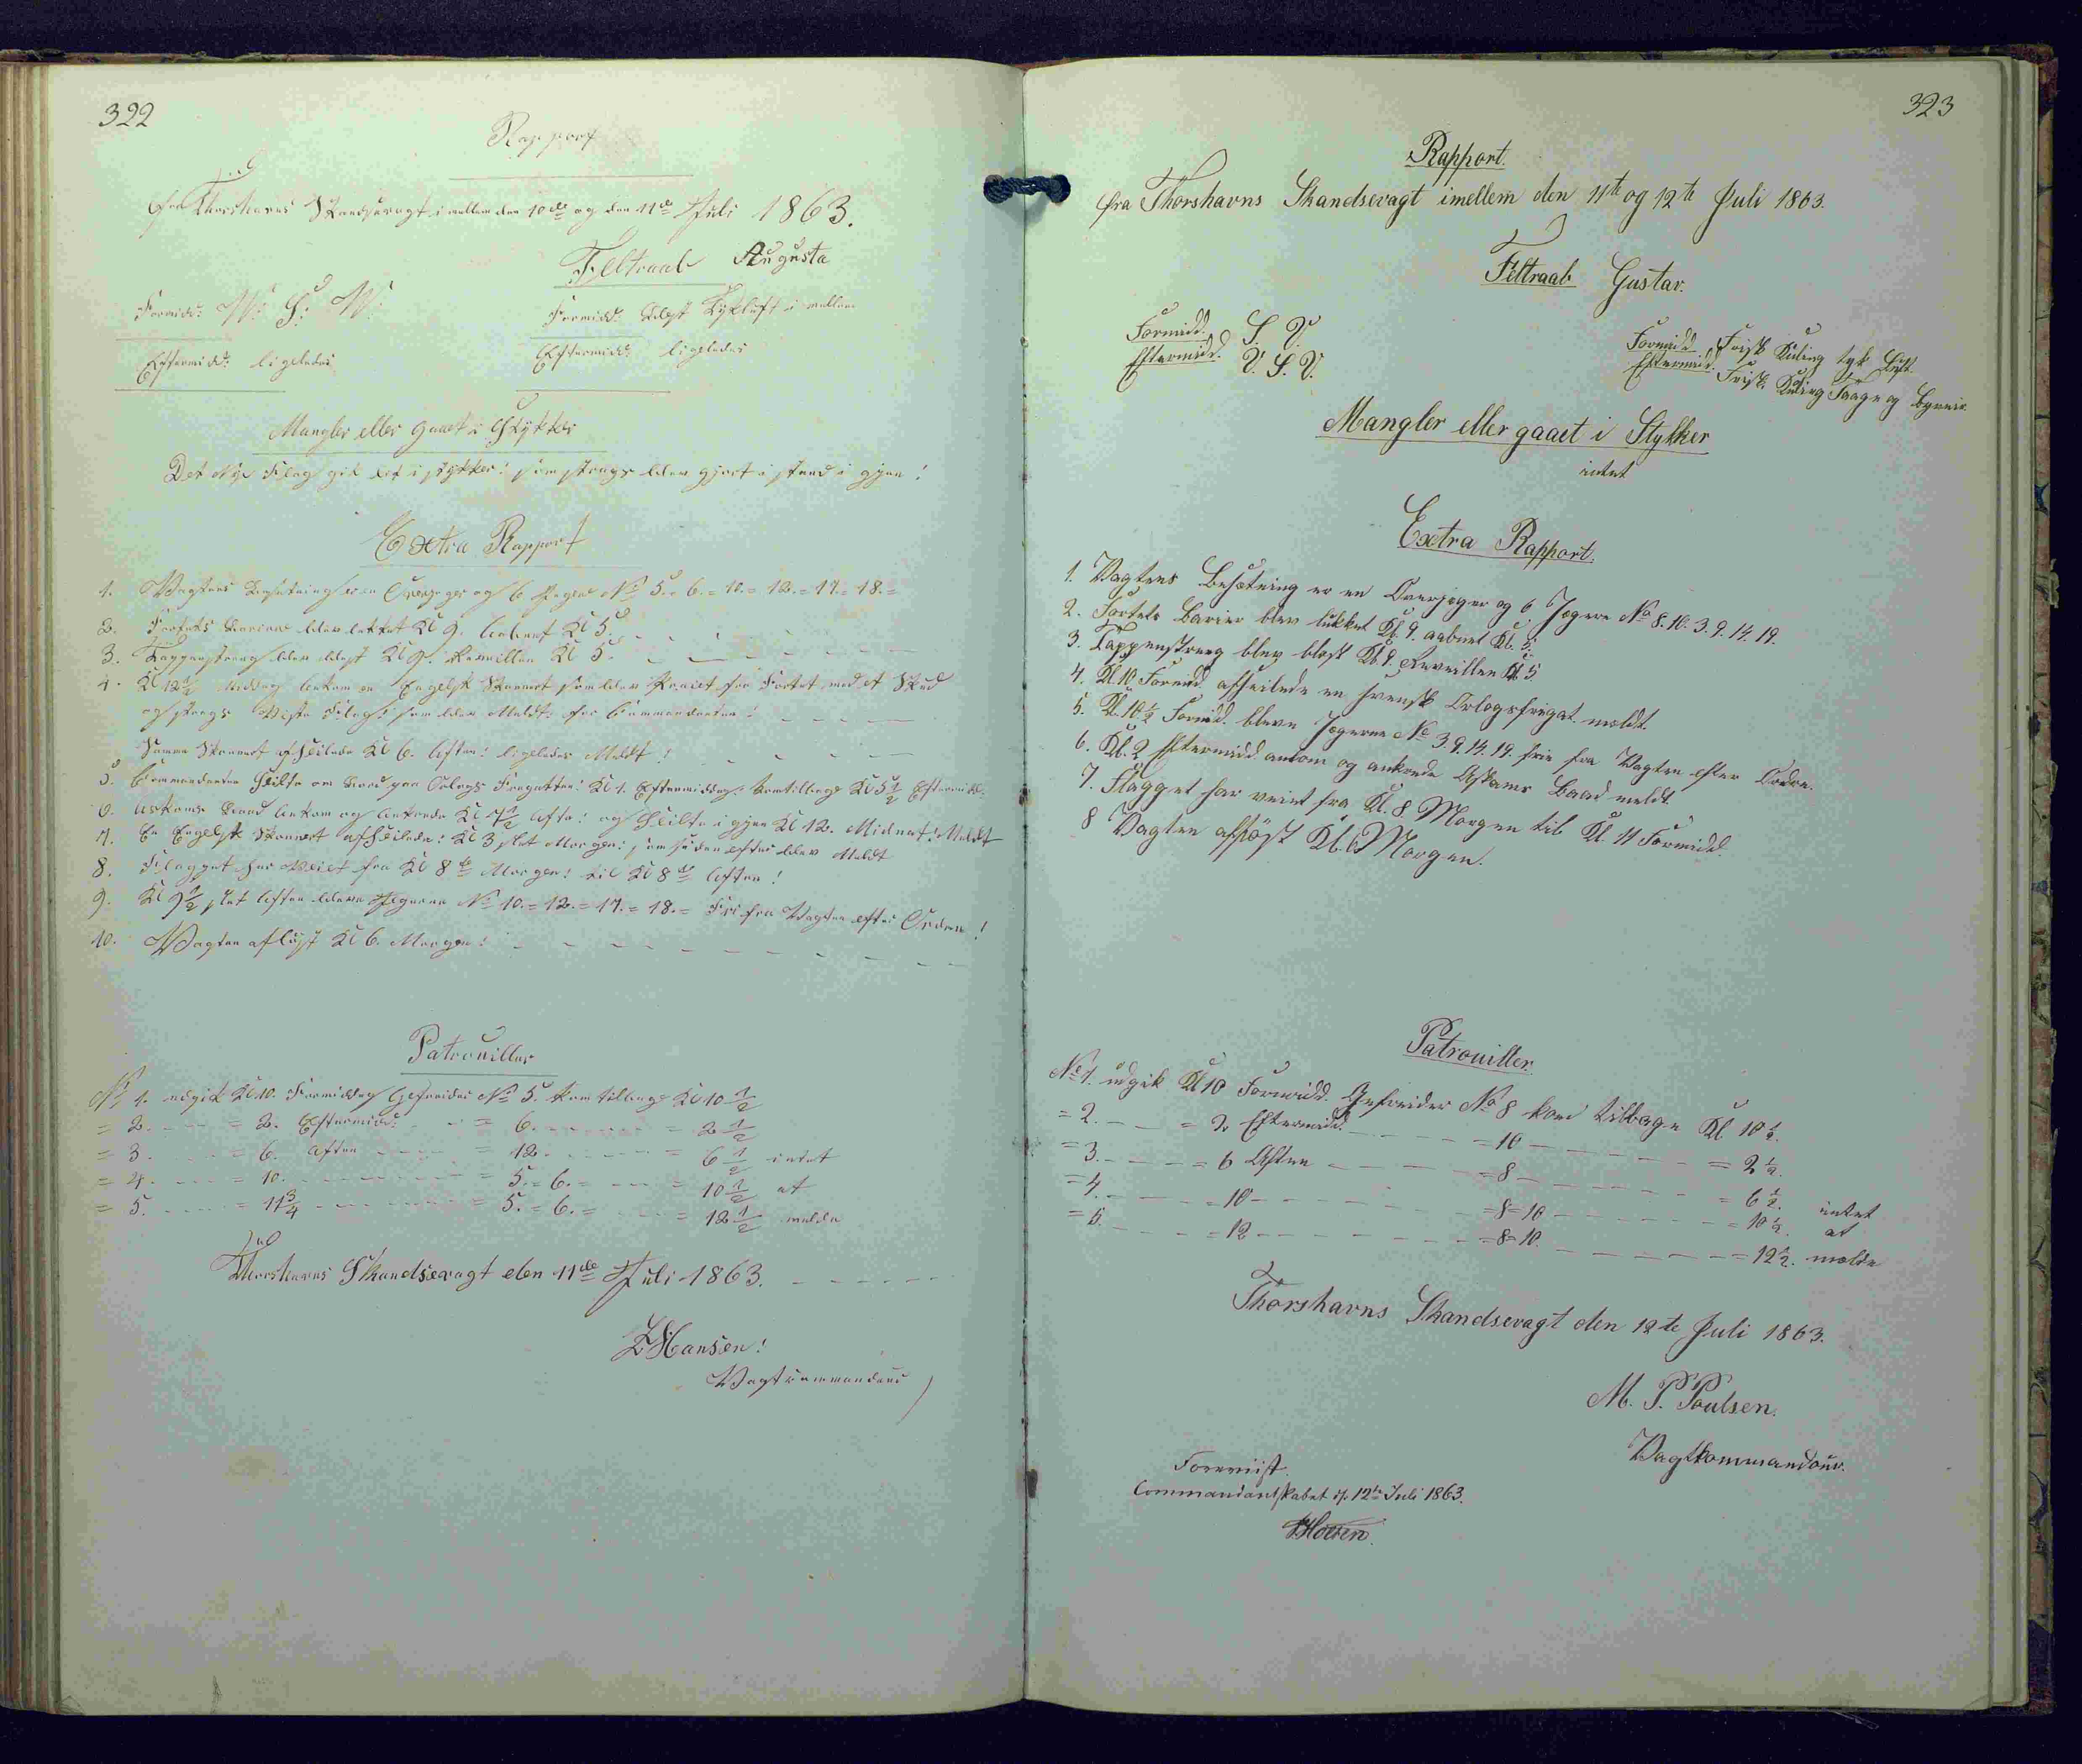 322
Rapport
fra Thorshavns Skandsevagt imellem den 10de og den 11de Juli 1863.
Feltraab Augusta
Formidd: W: S: W:
Formidd: blæst Tykluft imellem
Eftermidd: ligeledes
Eftermidd: ligeledes
Mangler eller gaaet i Stykker
Det Nye Flag gik lit i stykker! som strags blev gjort i stand i gjen!
Extra Rapport
1. Vagtens Besætning er en Overjeger og 6 Jegere No 5. = 6. = 10. = 12. = 17. = 18. =
2. Fortets Bariere blev lukket Kl 9. Aabnet Kl 5.
3. Tappenstreeg blev blæst Kl 9. Reveillen Kl 5.
4. Kl 12½ Middag Ankom en Engelsk Skonnert som blev Praiet fra Fortet med et Skud
og strags Viste Flag! som blev Meldt for Commandanten!
Samme Skonnert afseilede Kl 6. Aften! ligeledes Meldt!
5. Commandanten Seilte om Bord paa Orlogs Fregatten! Kl 1. Eftermiddag! kom tilbage Kl 5½ Eftermidd.
6. Askams Baad Ankom og Ankrede Kl 7½ Aften: og Seilte i gjen Kl 12. Midnat! Meldt
7. En Engelsk Skonnert afseilede! Kl 3 slet Morgen: som siden efter blev Meldt
8. Flagget har Veiet fra Kl 8de Morgen! til Kl 8de Aften!
9. Kl 9½ slet Aften bleve Jegerne No 10. = 12. = 17. = 18. = Fri fra Vagten efter Ordre!
10. Vagten aflöst Kl 6. Morgen!
Patrouiller
No 1. udgik Kl 10. Formiddag Gefreider No 5. kom tilbage Kl 10½
= 2. = 2. Eftermidd: = 6. = 2½
= 3. = 6. Aften = 12. = 6½ intet
= 4. = 10. = 5. = 6. = = 10½ at
= 5. = 11¾ = 5. = 6. = = 12½ melde
Thorshavns Skandsevagt den 11de Juli 1863.
Hansen!
Vagtcommandeur
323
Rapport.
fra Thorshavns Skandsevagt imellem den 11te og 12te Juli 1863.
Feltraab Gustav.
Formidd. S. V.
Formidd. Frisk Kuling tyk Luft.
Eftermidd. V. S. V.
Eftermidd. Frisk Kuling Taage og
Mangler eller gaaet i Stykker
intet
Extra Rapport.
1. Vagtens Besætning er en Overjeger og 6 Jegere No 8. 10. 3. 9. 14. 19.
2. Fortets Barier blev lukket Kl. 9. aabnet Kl. 5.
3. Tappenstreeg blev blæst Kl. 9. Reveillen Kl 5
4. Kl. 10 Formidd. afseilede en svensk Orlogsfregat meldt.
5. Kl. 10½ Formidd. bleve Jegerne No 3. 9. 14. 19. frie fra Vagten efter Ordre.
6. Kl. 2 Eftermidd ankom og ankrede Askams Baad meldt.
7. Flagget har veiet fra Kl. 8 Morgen til Kl. 11 Formidd.
8 Vagten aflöst Kl. 6 Morgen.
Patrouiller.
No 1. udgik Kl 10 Formidd. Gefreider No 8 kom tilbage Kl. 10½.
= 2. = 2. Eftermidd. = 10 = 2½.
= 3. = 6 Aften = 8 = 6½. intet
= 4. = 10 = 8 = 10 = 10½. at
= 5. = 12 = 8 = 10. = 12½. melde
Thorshavns Skandsevagt den 12te Juli 1863.
M. P. Poulsen.
Vagtkommandeur.
Foreviist.
Commandantskabet i/. 12te Juli 1863.